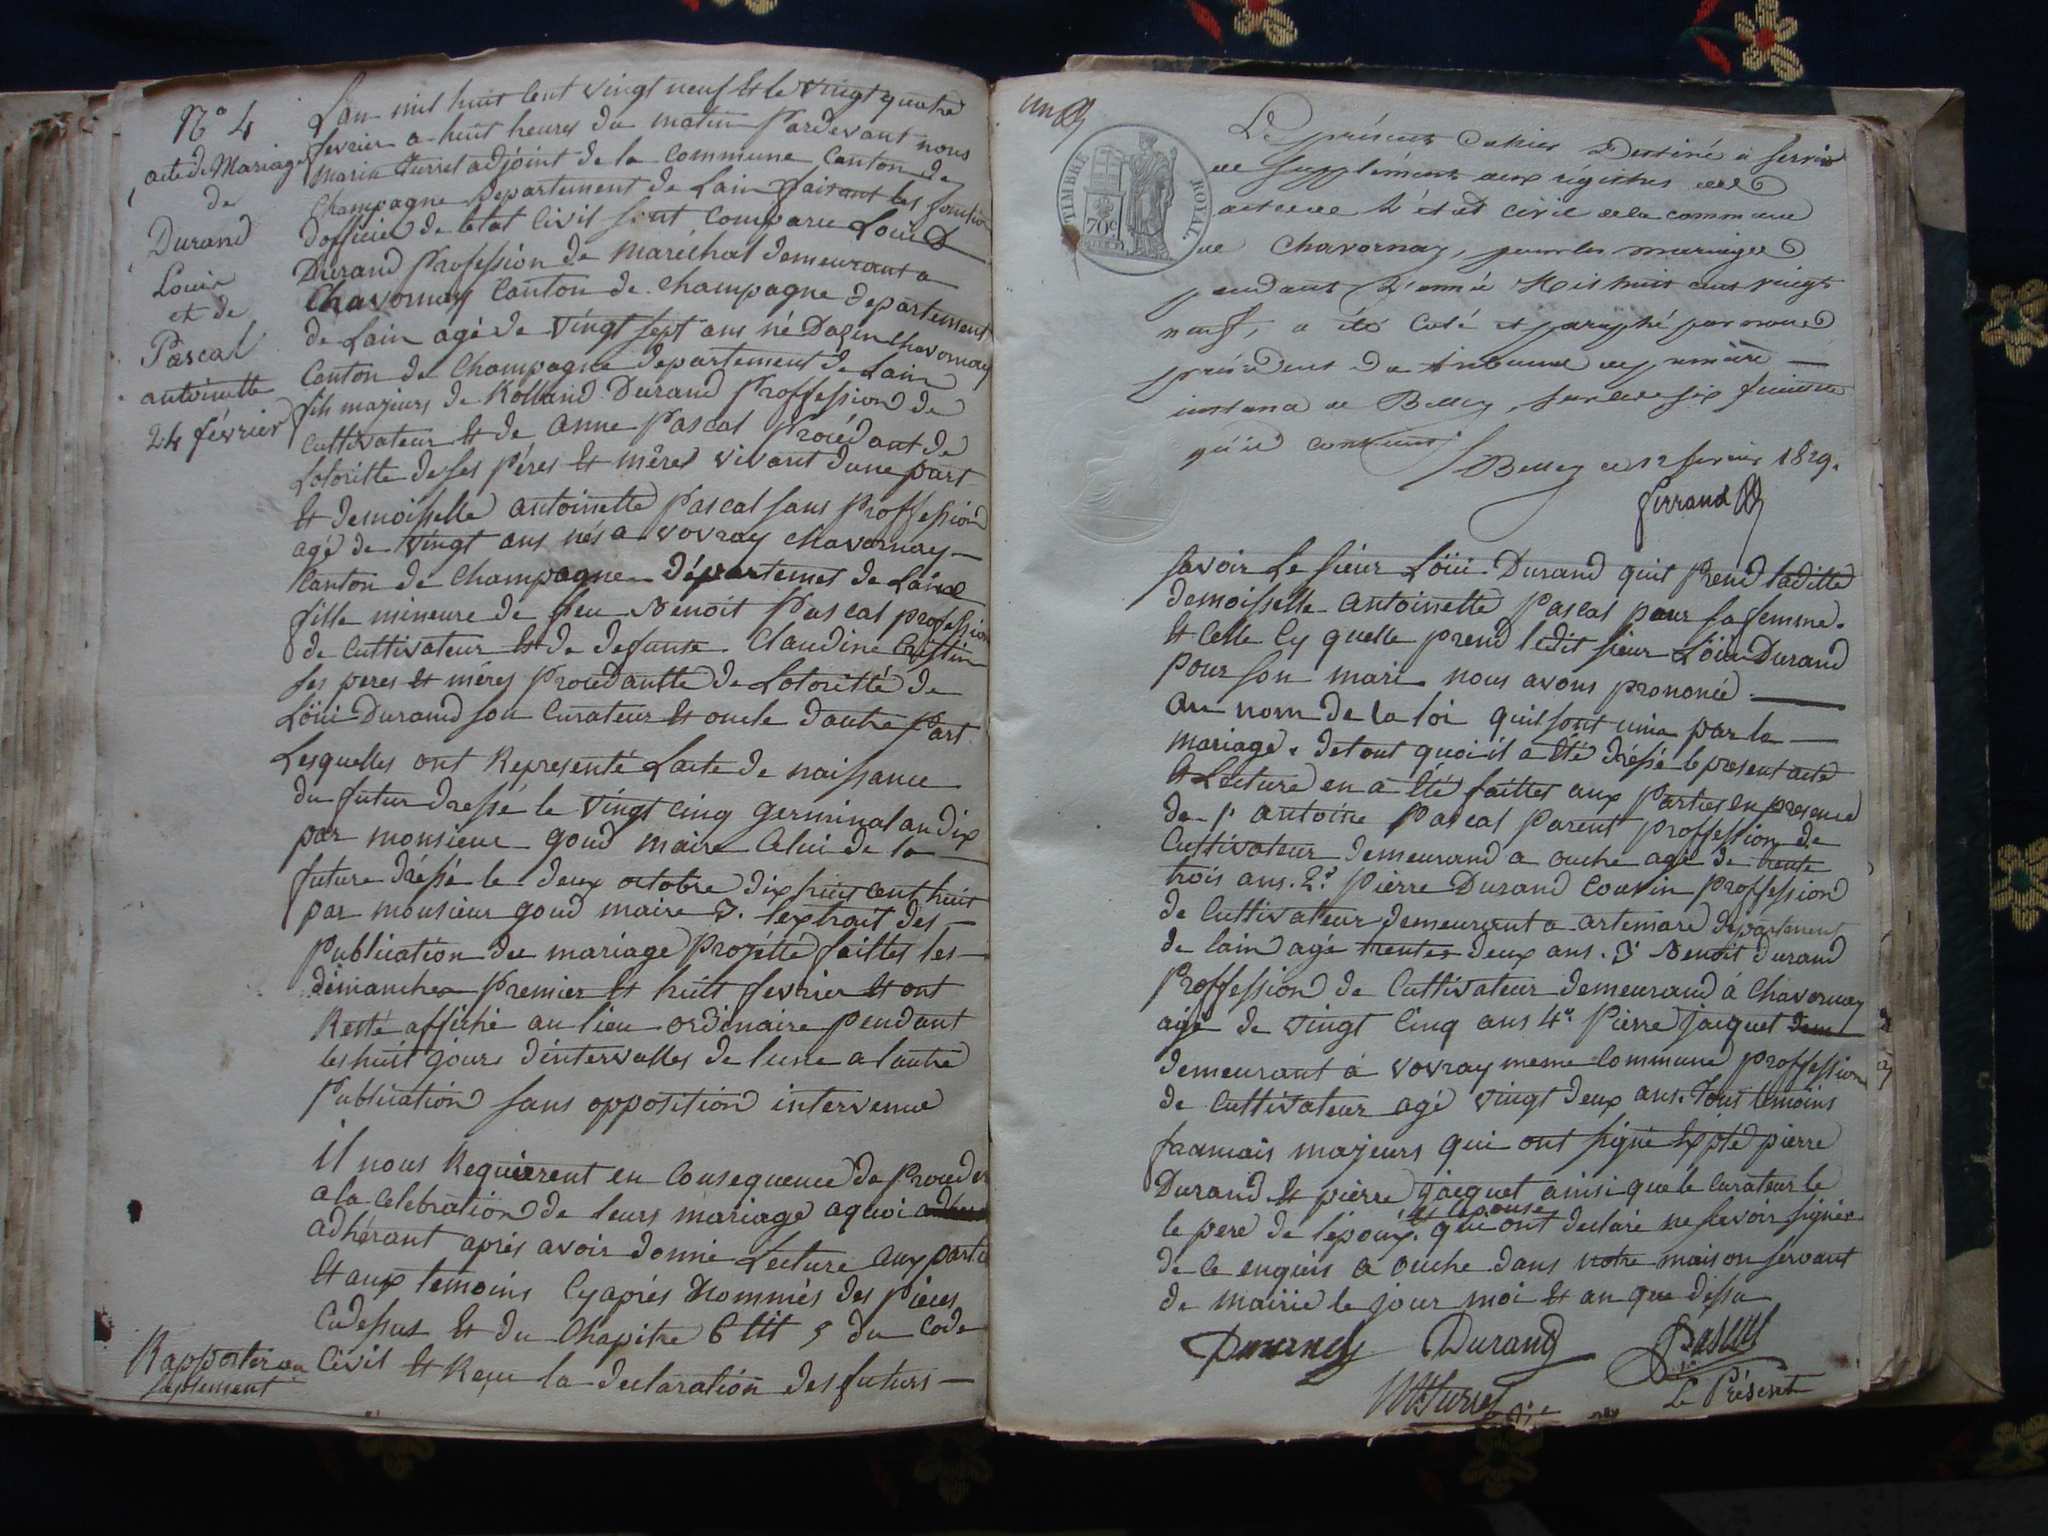 N° 4
acte de Mariage
de
Durand
Louis
et de
Pascal
antoinette
24 février
Lan mil huit Cent vingt neuf et le vingt quatre
fevrier a huit heures du matin Pardevant nous
marin Turrel adjoint de la Commune Canton de
Champagne Departement de Lain faisant les fonction
dofficier de letat Civil sont Comparu Louis
Durand Profession de maréchal demeurant a
Chavornay Canton de Champagne departement
de Lain agé de vingt sept ans né Chavornay
Canton de Champagne departement de Lain
fils majeurs de Rolland Durand Proffession de
Cultivateur et de anne Pascal Procédant de
Lotoritte de ses Péres et méres vivant dune part
et demoisselle antoinette Pascal sans Proffession
agé de vingt ans nés a vovray chavornay
Canton de Champagne département de Lain
fille mineure de feu Benoit Pascal profession
de Cultivateur et de defunte Claudine
ses peres et méres Procédantte de Lotoritté de
Loüi Durand son Curateur et oncle dautre Part
Lesquelles ont Representé Lacte de naissance
du futur dressé le vingt Cinq germinal an dix
par monsieur goud maire Celui de la
future dréssé le deux octobre dix huit cent huit
par monsieur goud maire 3. lextrait des
Publication du mariage Projetté faittes les
dimanches Premier et huit fevrier et ont
Resté affiché au lieu ordinaire pendant
les huit jours dintervalles de lune a lautre
Publication sans opposition intervenue
Il nous Requierent en Consequence de Proceder
a la Celebration de leurs mariage aquoi
adhérant aprés avoir donné Lecture aux partie
et aux temoins Cy aprés Nommés des Pieces
Cidessus et du Chapitre 6 tit 5 du Code
Civil et Reçu la declaration des futurs
Rapporter au
suplement
un
TIMBRE ROYAL
70c
Le présent Cahier Destiné a servir
de supplément aux registres des
actes de l'état civil de la commune
de Chavornay, pour les mariages
pendant l'année Mil huit cent vingt
neuf, a été Coté et paraphé par nous
président du tribunal de première
instance de Belley, sur les six feuillets
qu'il contient.
Belley le 12 fevrier 1829.
Ferrand
savoir Le sieur Loüi Durand quil Prend laditte
demoisselle antoinette Pascal pour sa femme.
et Celle Cy quelle prend ledit sieur Loüi Durand
pour son mari nous avons prononcé
au nom de la loi quil sont unia par la
mariage. de tout quoi il a été dréssé le present acte
et Lecture en a été faittes aux Parties en presence
de 1° antoine Pascal Parent proffession de
Cultivateur demeurand a ouche agé de trente
trois ans. 2° Pierre Durand Cousin Proffession
de Cultivateur demeurant a artemare departement
de lain agé trentes deux ans. 3° Benoit durand
Proffession de Cultivateur demeurand à Chavornay
agé de vingt Cinq ans 4° Pierre Jacquet dem
demeurant à vovray meme Commune proffession
de Cultivateur agé vingt deux ans. Tous temoins
francais majeurs qui ont signé Expté pierre
Durand et pierre Jacquet ainsi que le Curateur le
le pere de lépoux. et lepouse qui ont declaré ne savoir signer
de ce enquis a ouche dans notre maison servant
de mairie le jour moi et an que dessu
Durand Durand Pascal
Le Présent